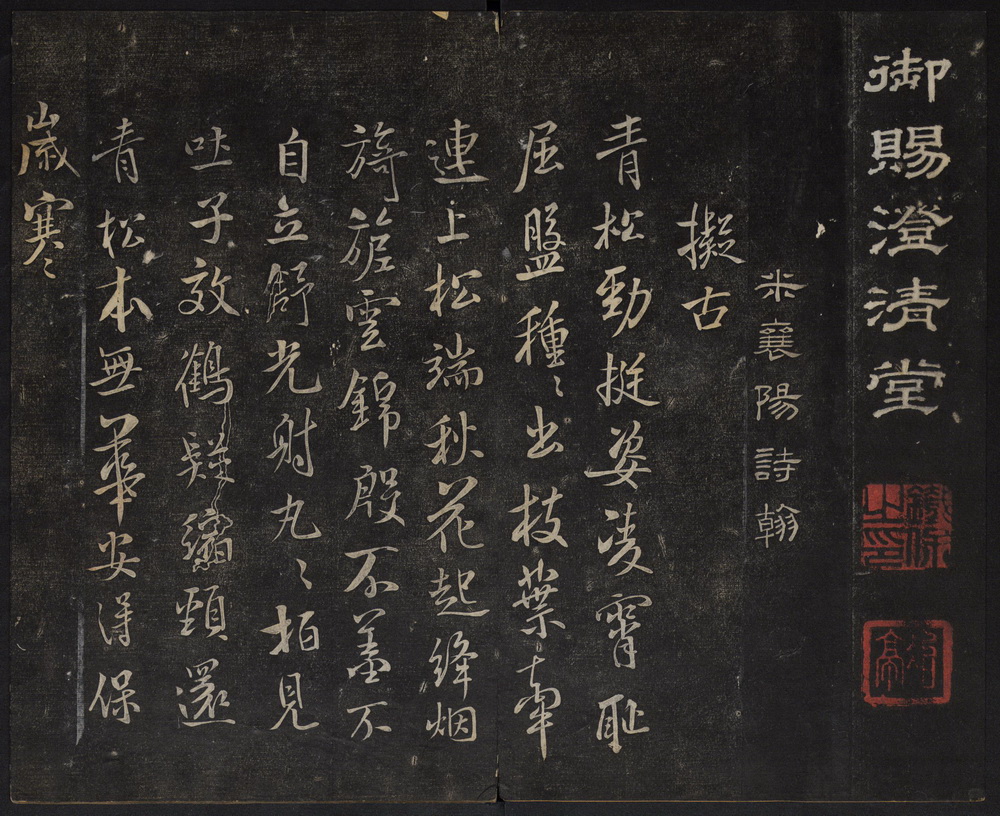 御賜澄清堂
鐵保之印
冶亭
米襄陽詩翰
擬古
青松勁挺姿凌霄耻
屈盤種〻出枝葉牽
連上松端秋花起絳烟
旖旎雲錦殷不羞不
自立舒光射丸〻柏見
吐子效鶴疑縮頸還
青松本無華安得保
歲寒